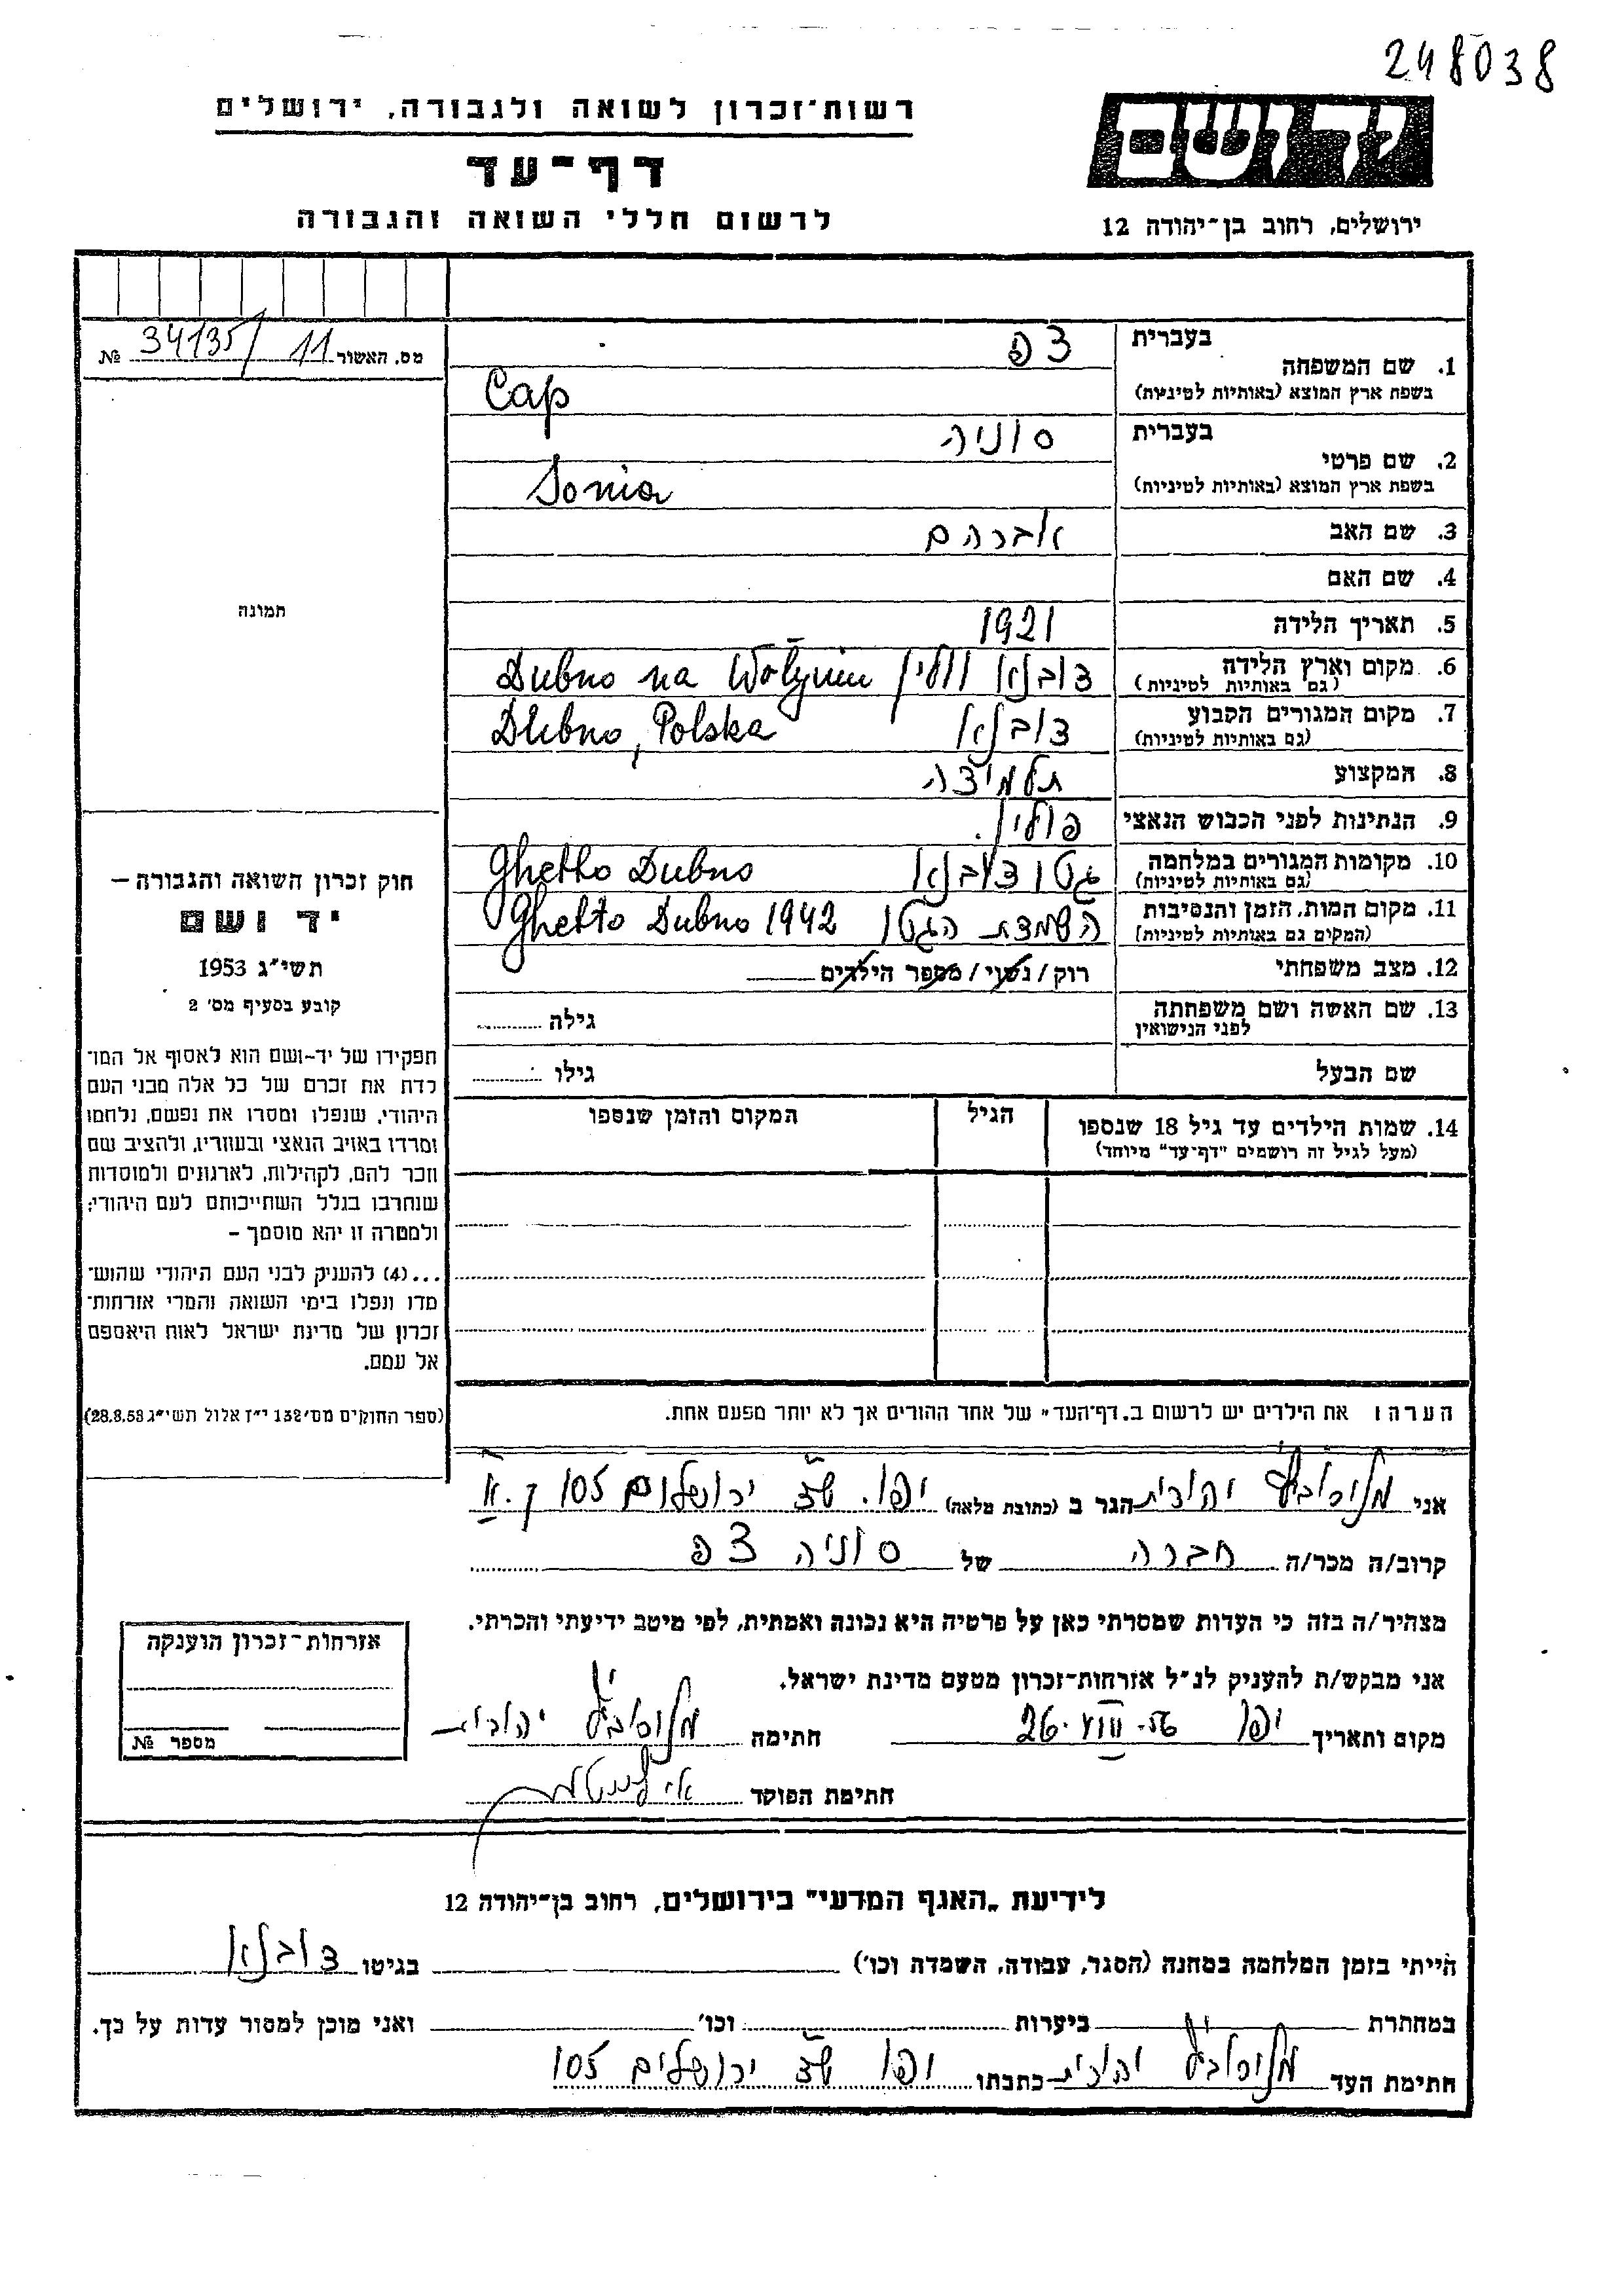 248038
ידושם
ירושלים, רחוב בן־יהודה 12
רשות־זכרון לשואה ולגבורה, ירושלים
דף־עד
לרשום חללי השואה והגבורה
מס. האשור 34135/11 №
תמונה
חוק זכרון השואה והגבורה –
יד ושם
תשי״ג 1953
קובע בסעיף מס׳ 2
תפקידו של יד-ושם הוא לאסוף אל המו־
לדת את זכרם של כל אלה מבני העם
היהודי, שנפלו ומסרו את נפשם, נלחמו
ומרדו באויב הנאצי ובעוזריו, ולהציב שם
וזכר להם, לקהילות, לארגונים ולמוסדות
שנחרבו בגלל השתייכותם לעם היהודי;
ולמטרה זו יהא מוסמך –
...(4) להעניק לבני העם היהודי שהוש־
מדו ונפלו בימי השואה והמרי אזרחות־
זכרון של מדינת ישראל לאות היאספם
אל עמם.
(ספר החוקים מס׳ 132 י״ז אלול תשי״ג 28.8.53)
1. שם המשפחה בעברית צפ
בשפת ארץ המוצא (באותיות לטיניות) Cap
2. שם פרטי בעברית סוניה
בשפת ארץ המוצא (באותיות לטיניות) Sonia
3. שם האב אברהם
4. שם האם
5. תאריך הלידה 1921
6. מקום וארץ הלידה (גם באותיות לטיניות) דובנא ווולין Dubno na Wołyniu
7. מקום המגורים הקבוע (גם באותיות לטיניות) דובנא Dubno, Polska
8. המקצוע תלמידה
9. הנתינות לפני הכבוש הנאצי פולין.
10. מקומות המגורים במלחמה (גם באותיות לטיניות) גטו דובנא Ghetto Dubno
11. מקום המות, הזמן והנסיבות (המקום גם באותיות לטיניות) השמדת הגטו Ghetto Dubno 1942
12. מצב משפחתי רוק/נשוי/מספר הילדים
13. שם האשה ושם משפחתה לפני הנישואין גילה
שם הבעל גילו
14. שמות הילדים עד גיל 18 שנספו הגיל המקום והזמן שנספו
(מעל לגיל זה רושמים "דף-עד" מיוחד)
הערה: את הילדים יש לרשום ב„דף-העד" של אחד ההורים אך לא יותר מפעם אחת.
אני יהודית הגר ב (כתובת מלאה) יפו. שד׳ ירושלים 105
קרוב/ה מכר/ה חברה של סוניה צפ
מצהיר/ה בזה כי העדות שמסרתי כאן על פרטיה היא נכונה ואמתית, לפי מיטב ידיעתי והכרתי.
אני מבקש/ת להעניק לנ״ל אזרחות-זכרון מטעם מדינת ישראל.
מקום ותאריך יפו 26.VIII.56 חתימה יהודית
חתימת הפוקד
אזרחות-זכרון הוענקה
מספר №
לידיעת „האגף המדעי" בירושלים, רחוב בן־יהודה 12
הייתי בזמן המלחמה במחנה (הסגר, עבודה, השמדה וכו׳) בגיטו דובנא
במחתרת ביערות וכו׳ ואני מוכן למסור עדות על כך.
חתימת העד יהודית כתבתו יפו שד׳ ירושלים 105